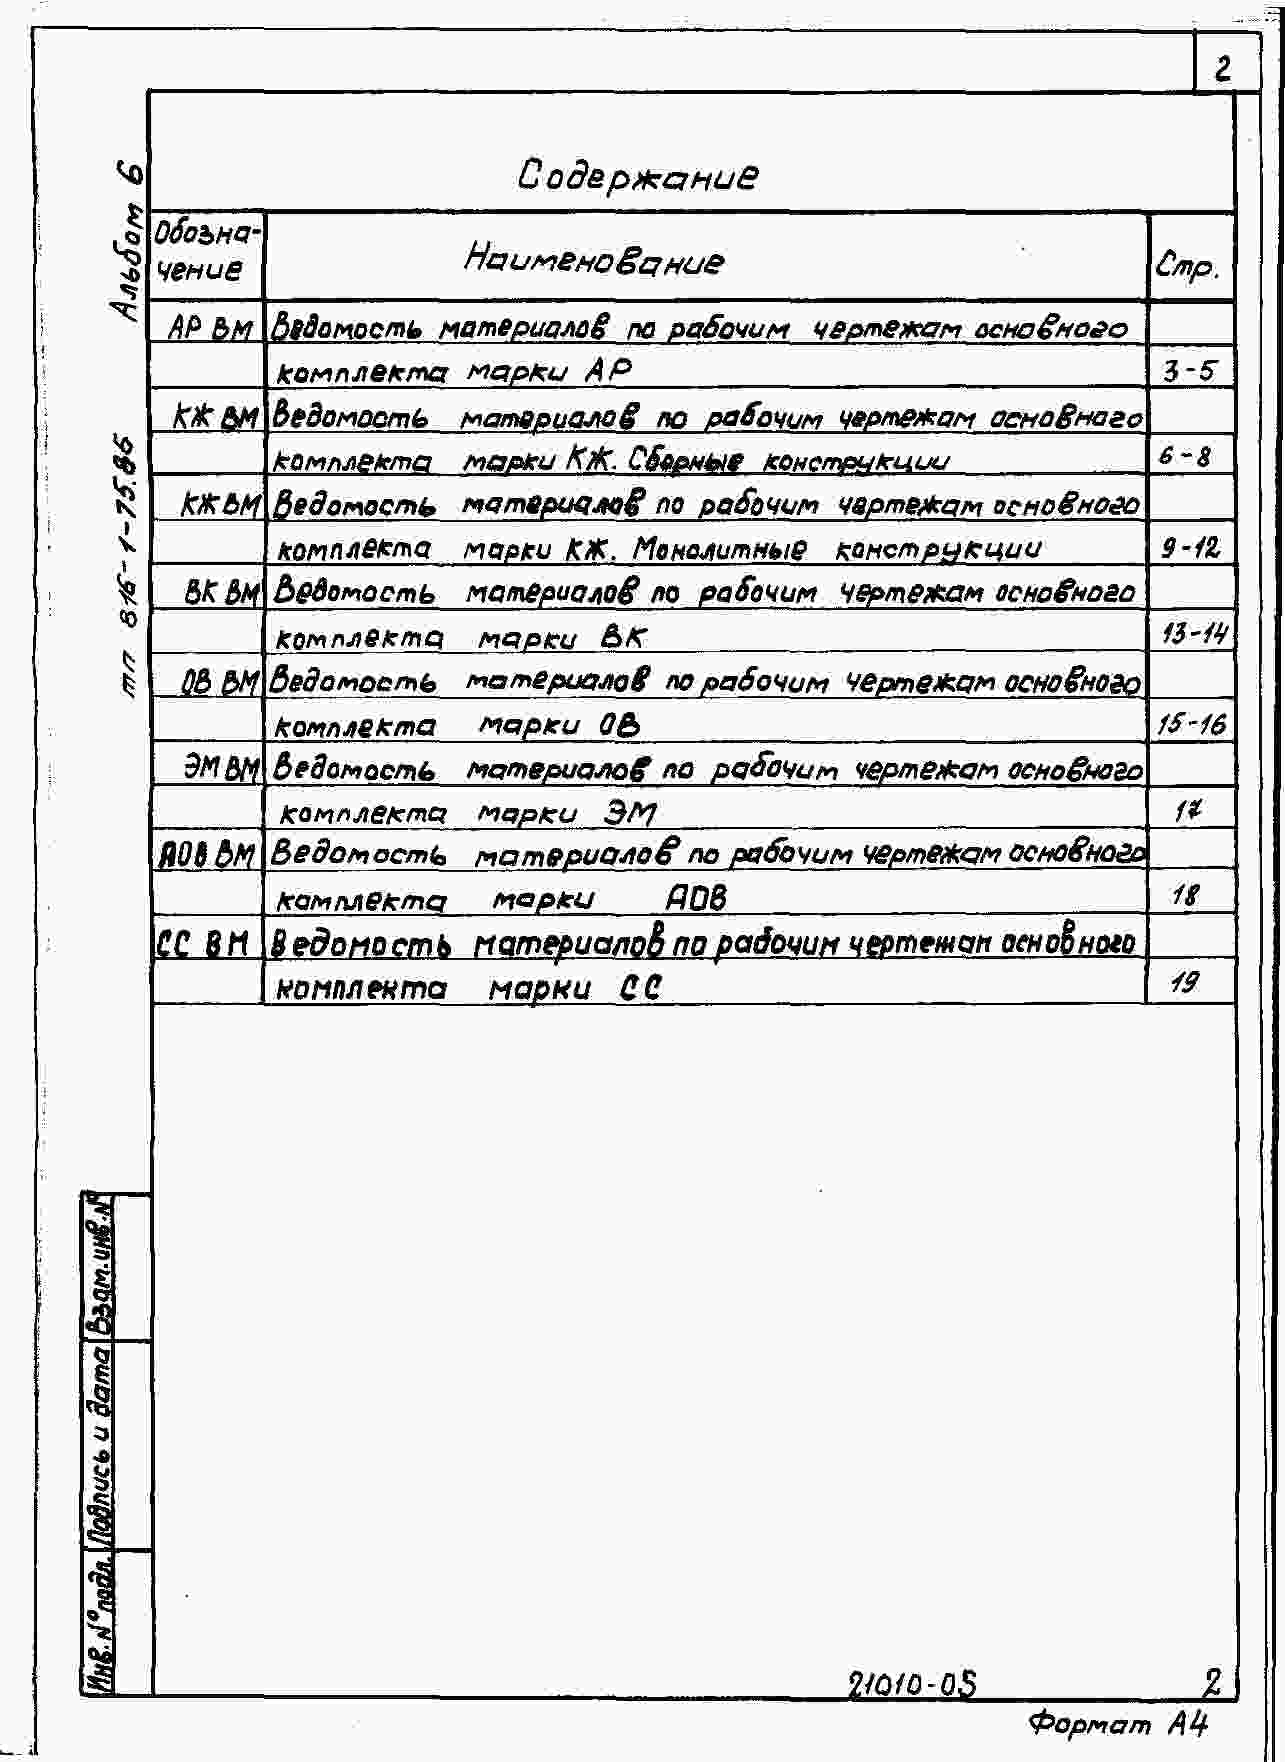 2
Альбом 6
тп 816-1-75.86
Содержание
Обозна-
чение
Наименование
Стр.
АР ВМ Ведомость материалов по рабочим чертежам основного
комплекта марки АР 3-5
КЖ ВМ Ведомость материалов по рабочим чертежам основного
комплекта марки КЖ. Сборные конструкции 6-8
КЖ ВМ Ведомость материалов по рабочим чертежам основного
комплекта марки КЖ. Монолитные конструкции 9-12
ВК ВМ Ведомость материалов по рабочим чертежам основного
комплекта марки ВК 13-14
ОВ ВМ Ведомость материалов по рабочим чертежам основного
комплекта марки ОВ 15-16
ЭМ ВМ Ведомость материалов по рабочим чертежам основного
комплекта марки ЭМ 17
АОВ ВМ Ведомость материалов по рабочим чертежам основного
комплекта марки АОВ 18
СС ВМ Ведомость материалов по рабочим чертежам основного
комплекта марки СС 19
Взам.инв.№
Подпись и дата
Инв.№подл.
21010-05 2
Формат А4